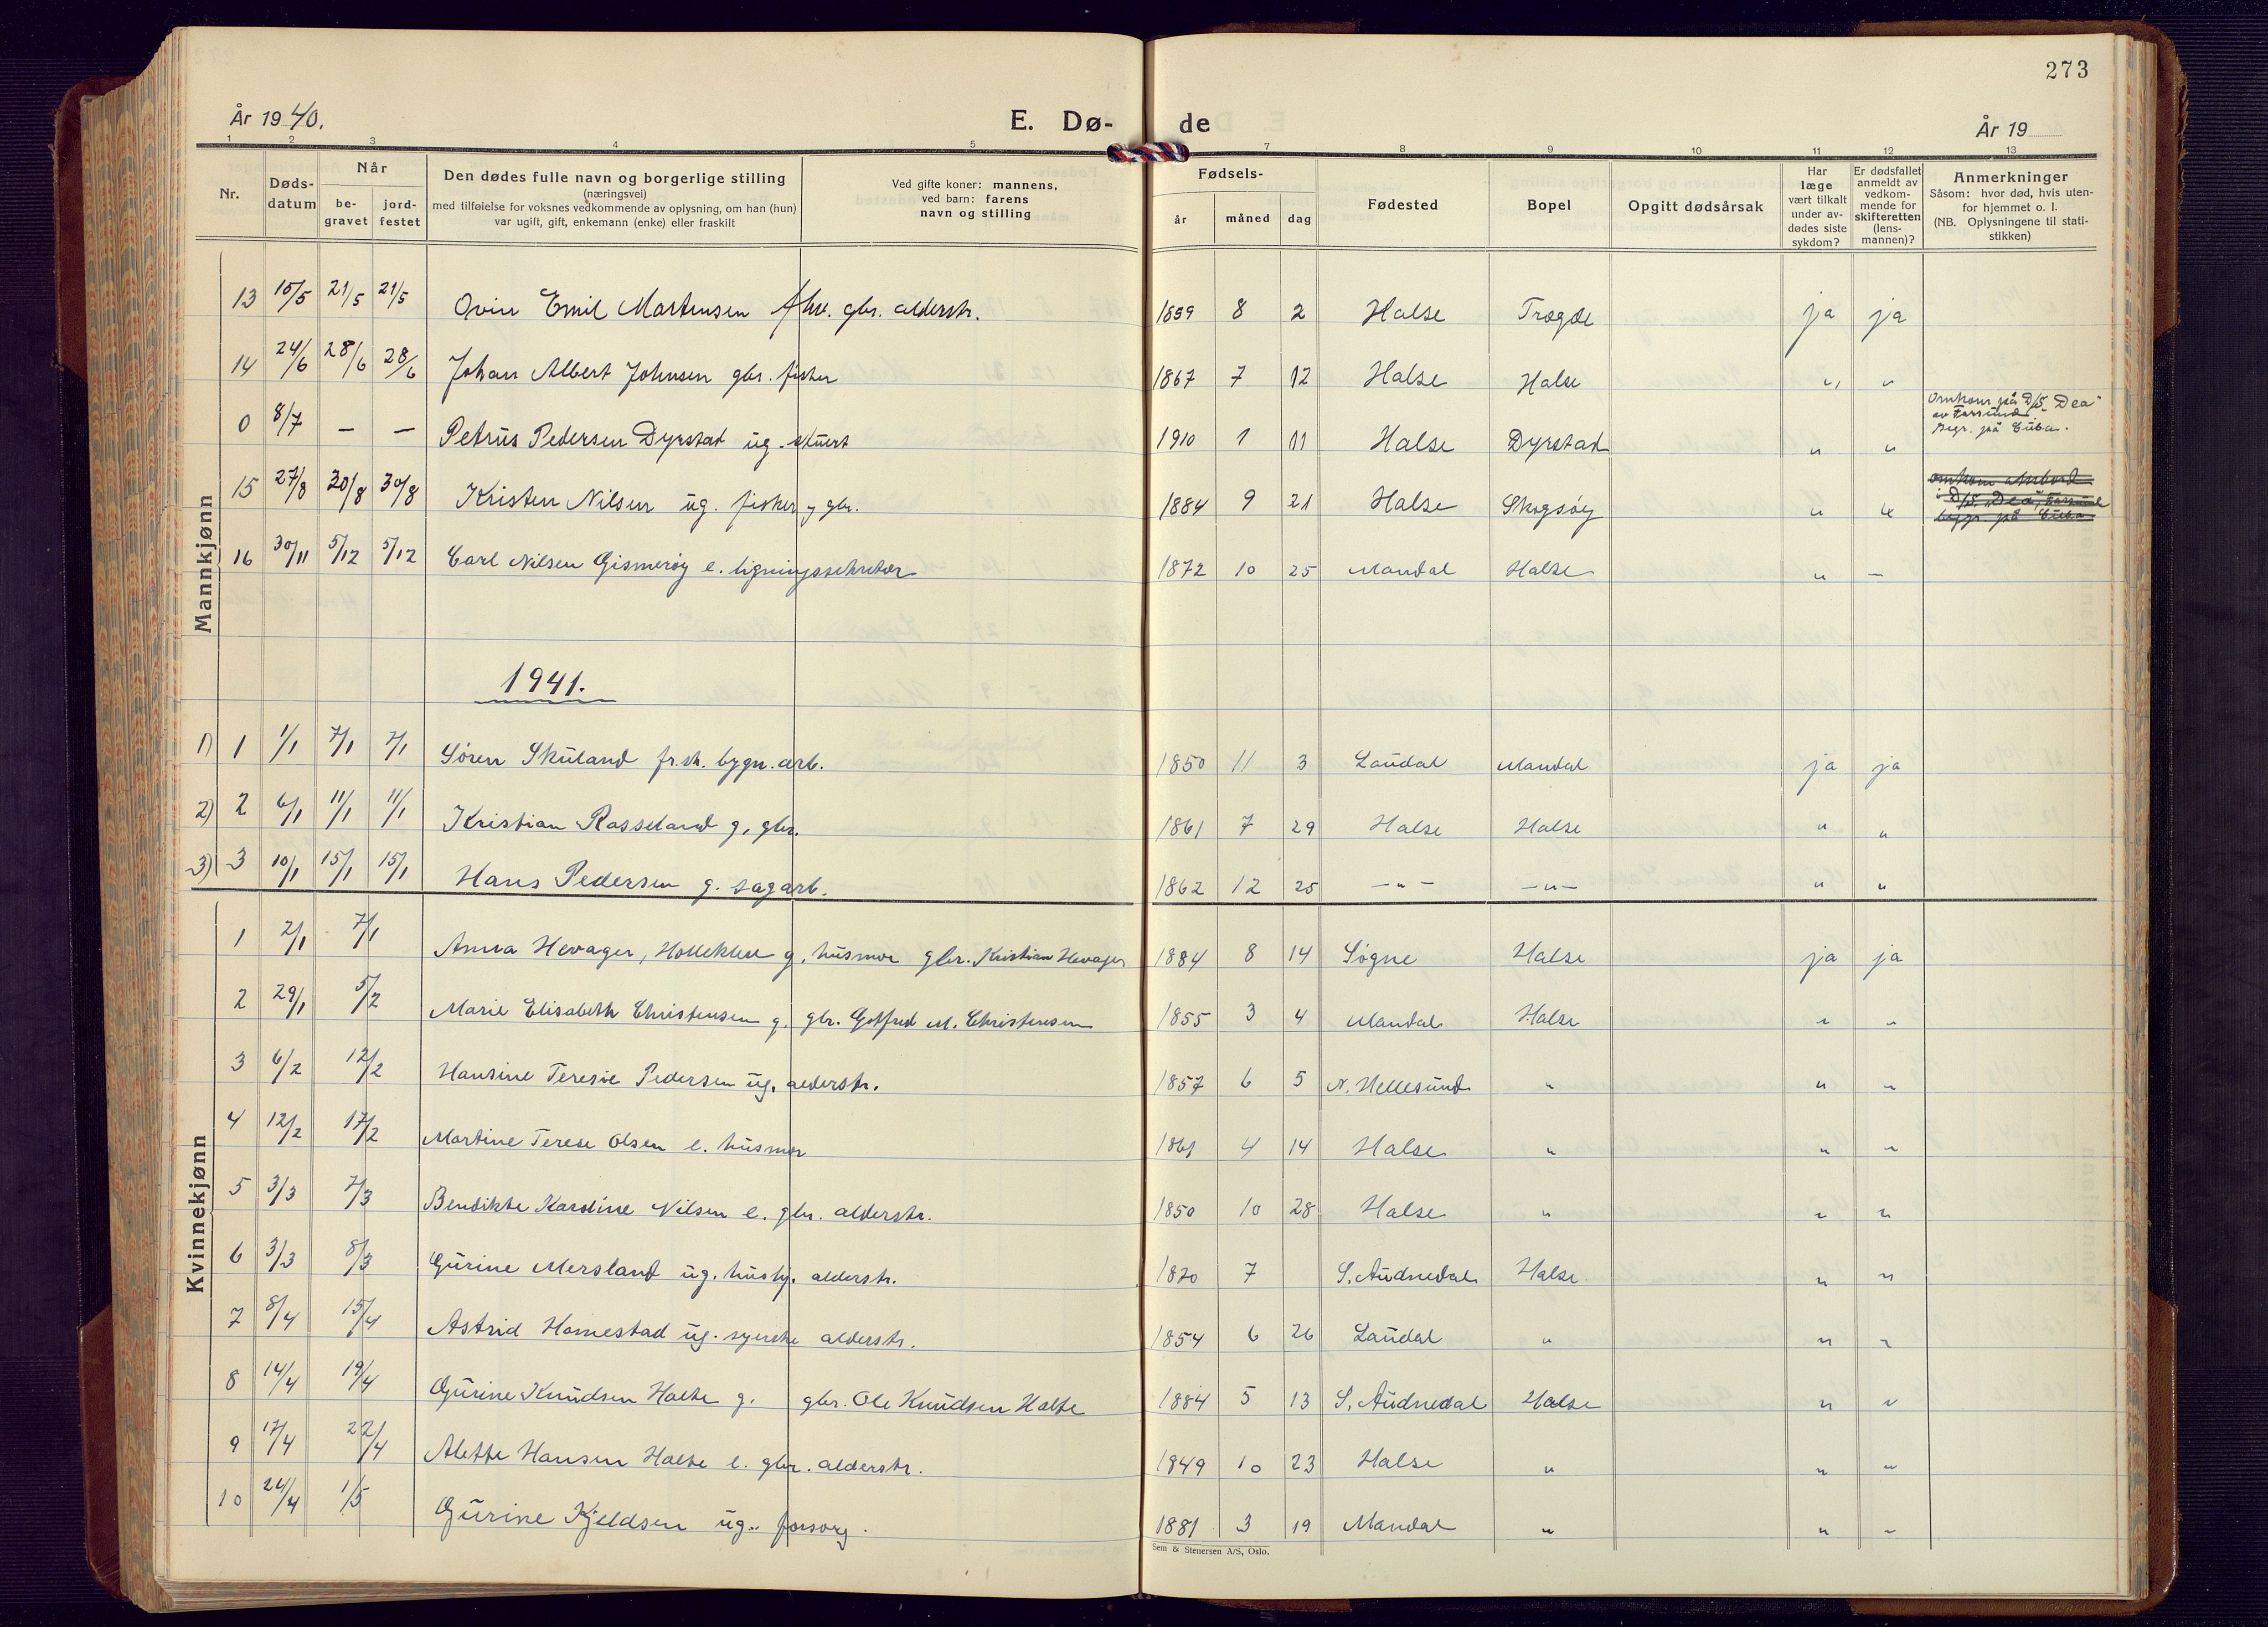 273
År 1940.
E. Dø-
de
År 19
1 2 3 4 5 7 8 9 10 11 12 13
Nr.
Døds-
datum
Når
be-
gravet
jord-
festet
Den dødes fulle navn og borgerlige stilling
(næringsvei)
med tilføielse for voksnes vedkommende av oplysning, om han (hun)
var ugift, gift, enkemann (enke) eller fraskilt
Ved gifte koner: mannens,
ved barn: farens
navn og stilling
Fødsels-
år
måned
dag
Fødested
Bopel
Opgitt dødsårsak
Har
læge
vært tilkalt
under av-
dødes siste
sykdom?
Er dødsfallet
anmeldt av
vedkom-
mende for
skifteretten
(lens-
mannen)?
Anmerkninger
Såsom: hvor død, hvis uten-
for hjemmet o. l.
(NB. Oplysningene til stati-
stikken)
Mannkjønn
13 15/5 21/5 21/5 Emil Martensen gbr. alderstr. 1859 8 2 Halse Tregde ja ja
14 24/6 28/6 28/6 Johan Albert Johnsen gbr. fisker 1867 7 12 Halse Halse " "
0 8/7 — — Petrus Pedersen Dyrstad ug. stuert 1910 1 11 Halse Dyrstad " "
Omkom på D/S. "Dea"
av Farsund.
Begr. på Cuba.
15 27/8 30/8 30/8 Kristen Nilsen ug. fisker og gbr. 1884 9 21 Halse Skogsøy " "
omkom ombord
i D/S. "Dea", Farsund
begr. på Cuba
16 30/11 5/12 5/12 Carl Nilsen Gismerøy e. ligningssekretær 1872 10 25 Mandal Halse " —
1941.
1) 1 1/1 7/1 7/1 Søren Skuland fr.sk. bygn. arb. 1850 11 3 Laudal Mandal ja ja
2) 2 6/1 11/1 11/1 Kristian Rosseland g. gbr. 1861 7 29 Halse Halse " "
3) 3 10/1 15/1 15/1 Hans Pedersen g. sagarb. 1862 12 25 — " — — " — " "
Kvinnekjønn
1 2/1 7/1 Anna Hevager, g. husmor gbr. Kristian Hevager 1884 8 14 Søgne Halse ja ja
2 29/1 5/2 Marie Elisabeth Christensen g. gbr. Gotfred M. Christensen 1855 3 4 Mandal Halse " "
3 6/2 12/2 Hansine Teresie Pedersen ug. alderstr. 1857 6 5 N. Hellesund " " "
4 12/2 17/2 Martine Terese Olsen e. husmor 1861 4 14 Halse " " "
5 3/3 7/3 Bendikte Karoline Nilsen e. gbr. alderstr. 1850 10 28 Halse " " "
6 3/3 8/3 Gurine Mersland ug. hushj. alderstr. 1870 7 S. Audnedal Halse " "
7 8/4 15/4 Astrid Homestad ug. syerske alderstr. 1854 6 26 Laudal " " "
8 14/4 19/4 Gurine Knudsen Holte g. gbr. Ole Knudsen Holte 1884 5 13 S. Audnedal Halse " "
9 17/4 22/4 Alette Hansen Holte e. gbr. alderstr. 1849 10 23 Halse " " "
10 24/4 1/5 Gurine Kjeldsen ug. forsorg. 1881 3 19 Mandal " " "
Sem & Stenersen A/S, Oslo.